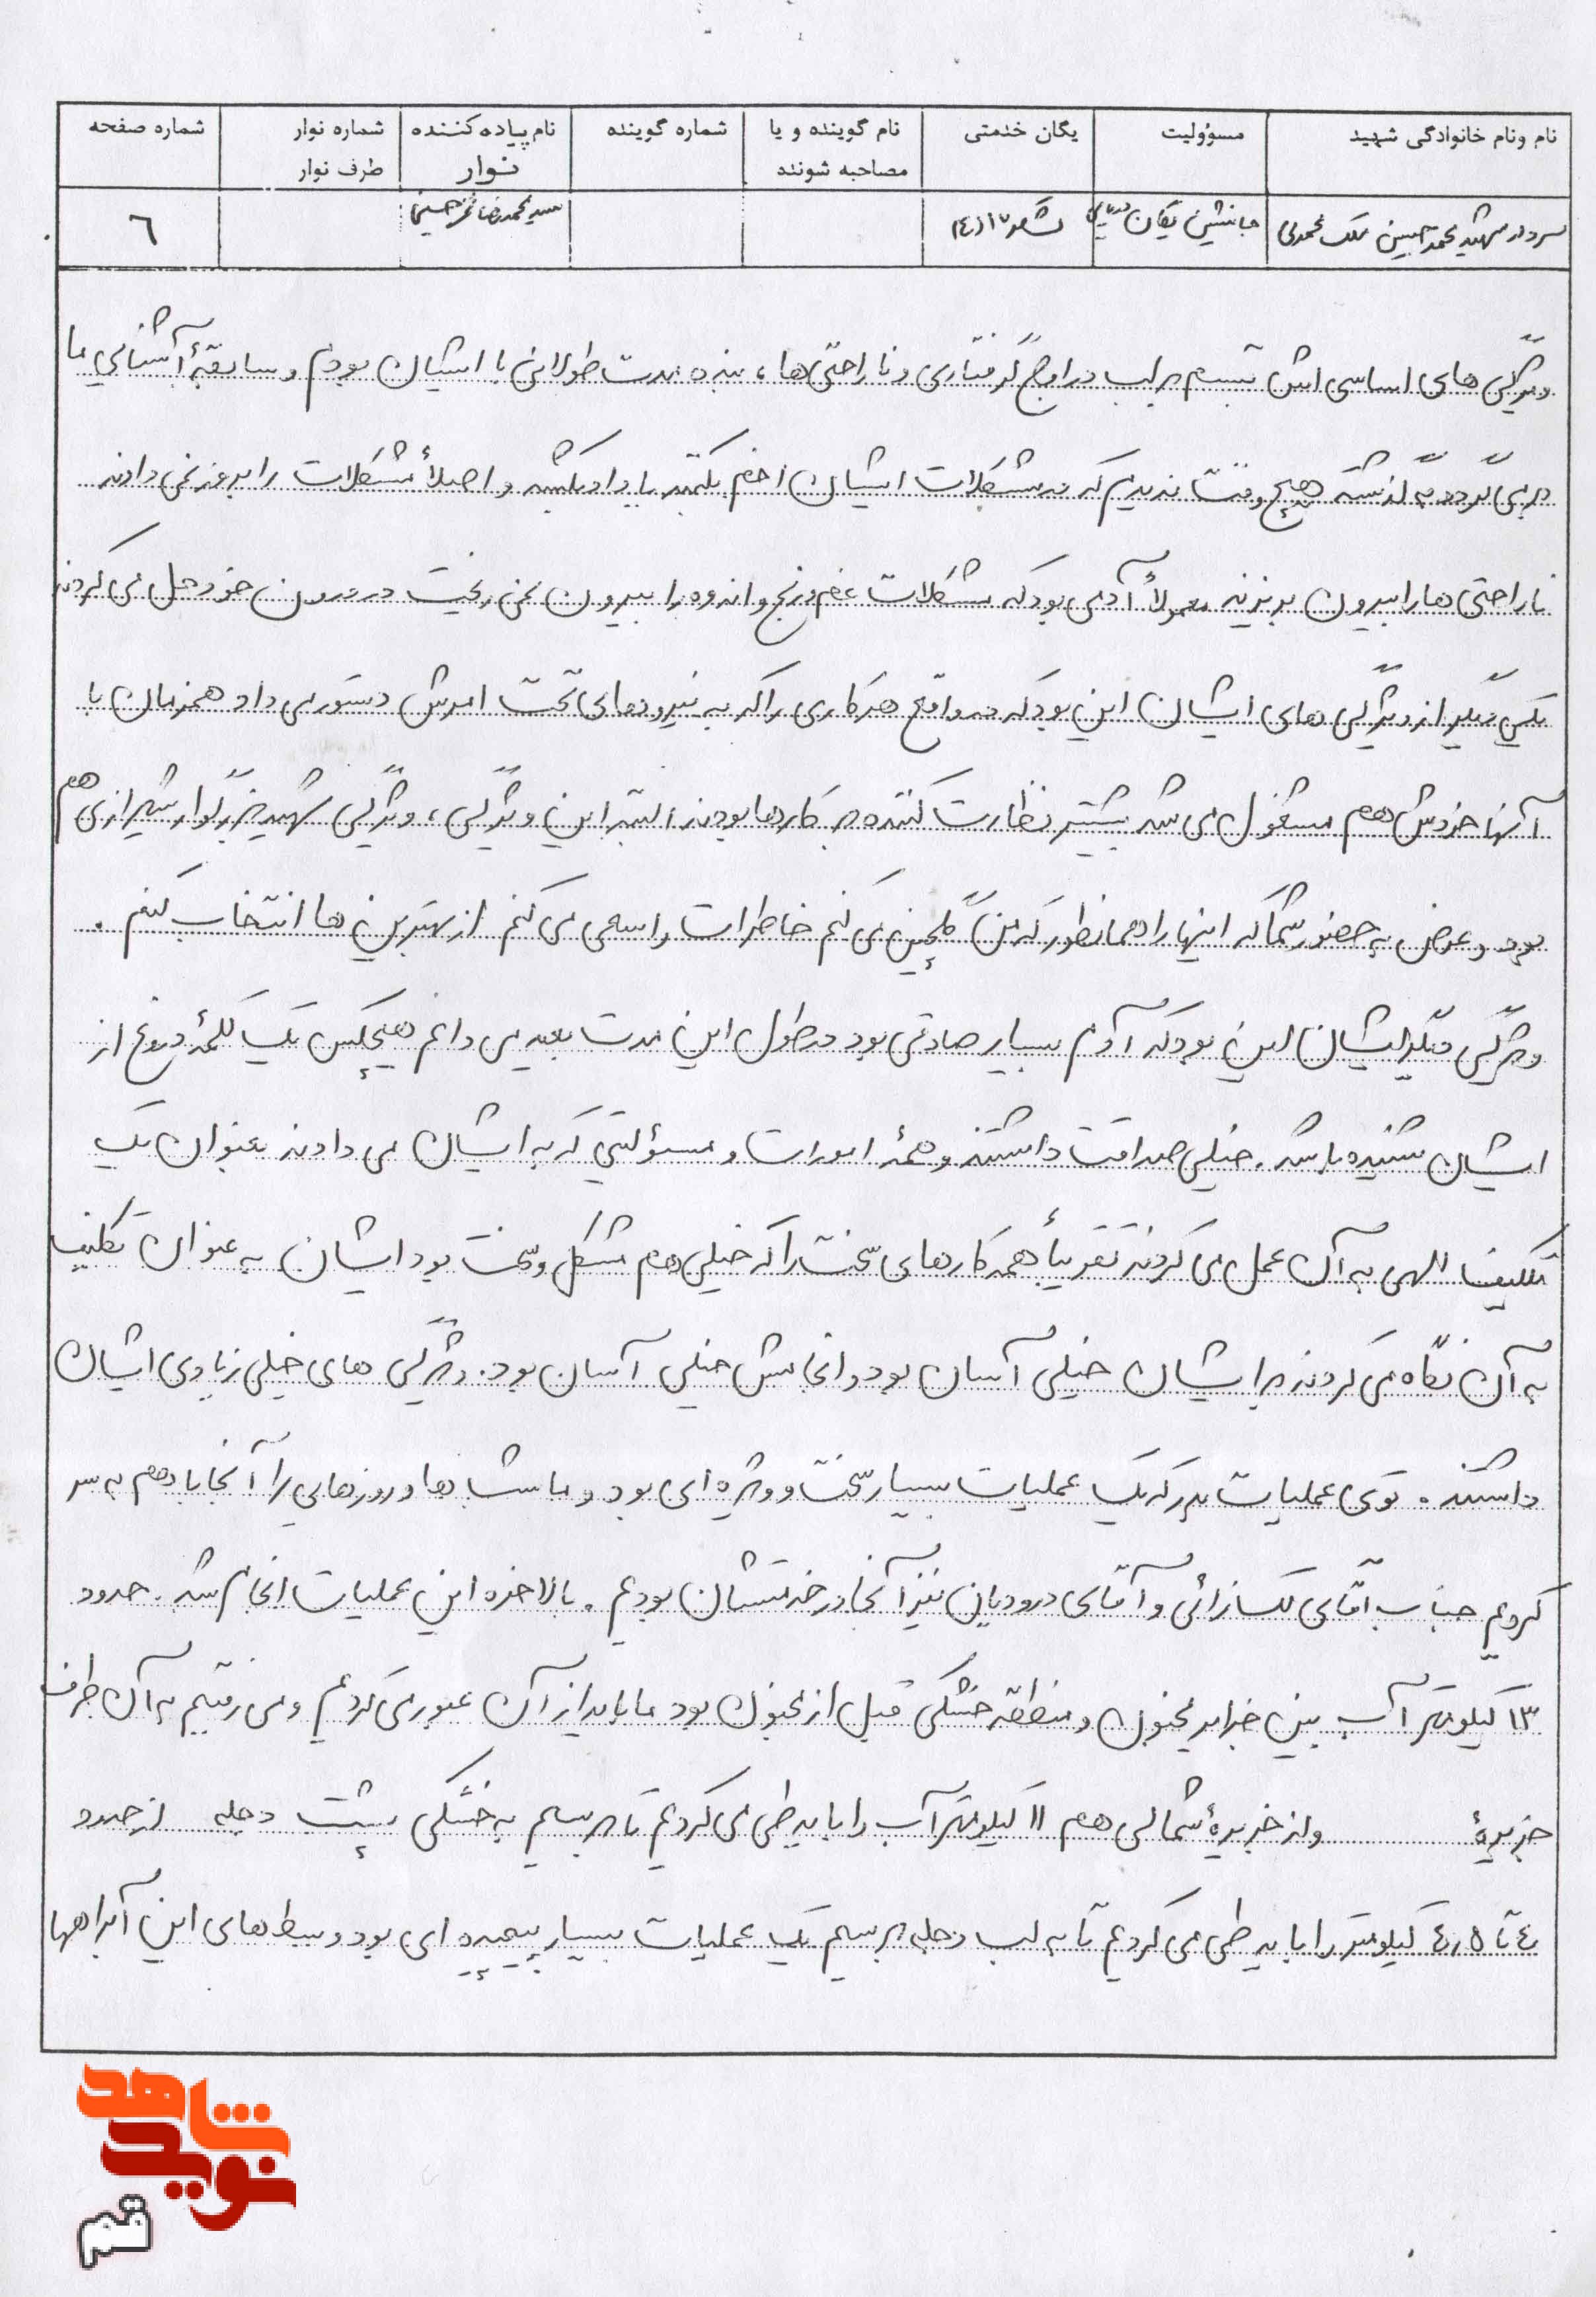 نام ونام خانوادگی شهید
مسوولیت
یگان خدمتی
نام گوینده و یا مصاحبه شونده
شماره گوینده
نام پیاده کننده نوار
شماره نوار
طرف نوار
شماره صفحه
سردار شهید محمد حسین ملک محمدی
جانشین یگان دریایی
لشکر ۱۷
۶
ویژگی های اساسی اش تبسم بر لب در اوج گرفتاری و ناراحتی ها، بنده مدت طولانی با ایشان بودم و سابقهٔ آشنایی ما
بر می گردد به گذشته هیچ وقت ندیدم که در مشکلات ایشان اخم بکنند یا داد بکشند و اصلاً مشکلات را بروز نمی دادند
ناراحتی ها را بیرون بریزند معمولاً آدمی بود که مشکلات غم و رنج و اندوه را بیرون نمی ریخت در درون خود حل می کردند
یکی دیگر از ویژگی های ایشان این بود که در واقع هر کاری را که به نیروهای تحت امرش دستور می داد همزمان با
آنها خودش هم مشغول می شد بیشتر نظارت کننده بر کارها بودند البته این ویژگی، ویژگی شهید بزرگوار شیرازی هم
بود و عرض به حضور شما که اینها را همانطور که من گلچین می کنم خاطرات را سعی می کنم از بهترین ها انتخاب کنم .
ویژگی دیگر ایشان این بود که آدم بسیار صادقی بود در طول این مدت بعید می دانم هیچکس یک کلمهٔ دروغ از
ایشان شنیده باشد . خیلی صداقت داشتند و همهٔ امورات و مسؤلتی که به ایشان می دادند بعنوان یک
تکلیف الهی به آن عمل می کردند تقریباً همه کارهای سخت را که خیلی هم مشکل و سخت بود ایشان به عنوان تکلیف
به آن نگاه می کردند برا ایشان خیلی آسان بود و انجامش خیلی آسان بود. ویژگی های خیلی زیادی ایشان
داشتند . توی عملیات بدر که یک عملیات بسیار سخت و ویژه ای بود و ما شب ها و روزهایی را آنجا با هم به سر
کردیم جناب آقای لکزائی و آقای درودیان نیز آنجا در خدمتشان بودیم . بالاخره این عملیات انجام شد . حدود
۱۳ کیلومتر آب بین جزایر مجنون و منطقه خشکی قبل از مجنون بود ما باید از آن عبور می کردیم و می رفتیم به آن طرف
جزیرهٔ و از جزیرهٔ شمالی هم ۱۱ کیلومتر آب را باید طی می کردیم تا برسیم به خشکی پشت دجله از حدود
۴ تا ۴٫۵ کیلومتر را باید طی می کردیم تا به لب دجله برسیم یک عملیات بسیار پیچیده ای بود وسط های این آبراهها
نوید شاهد
قم